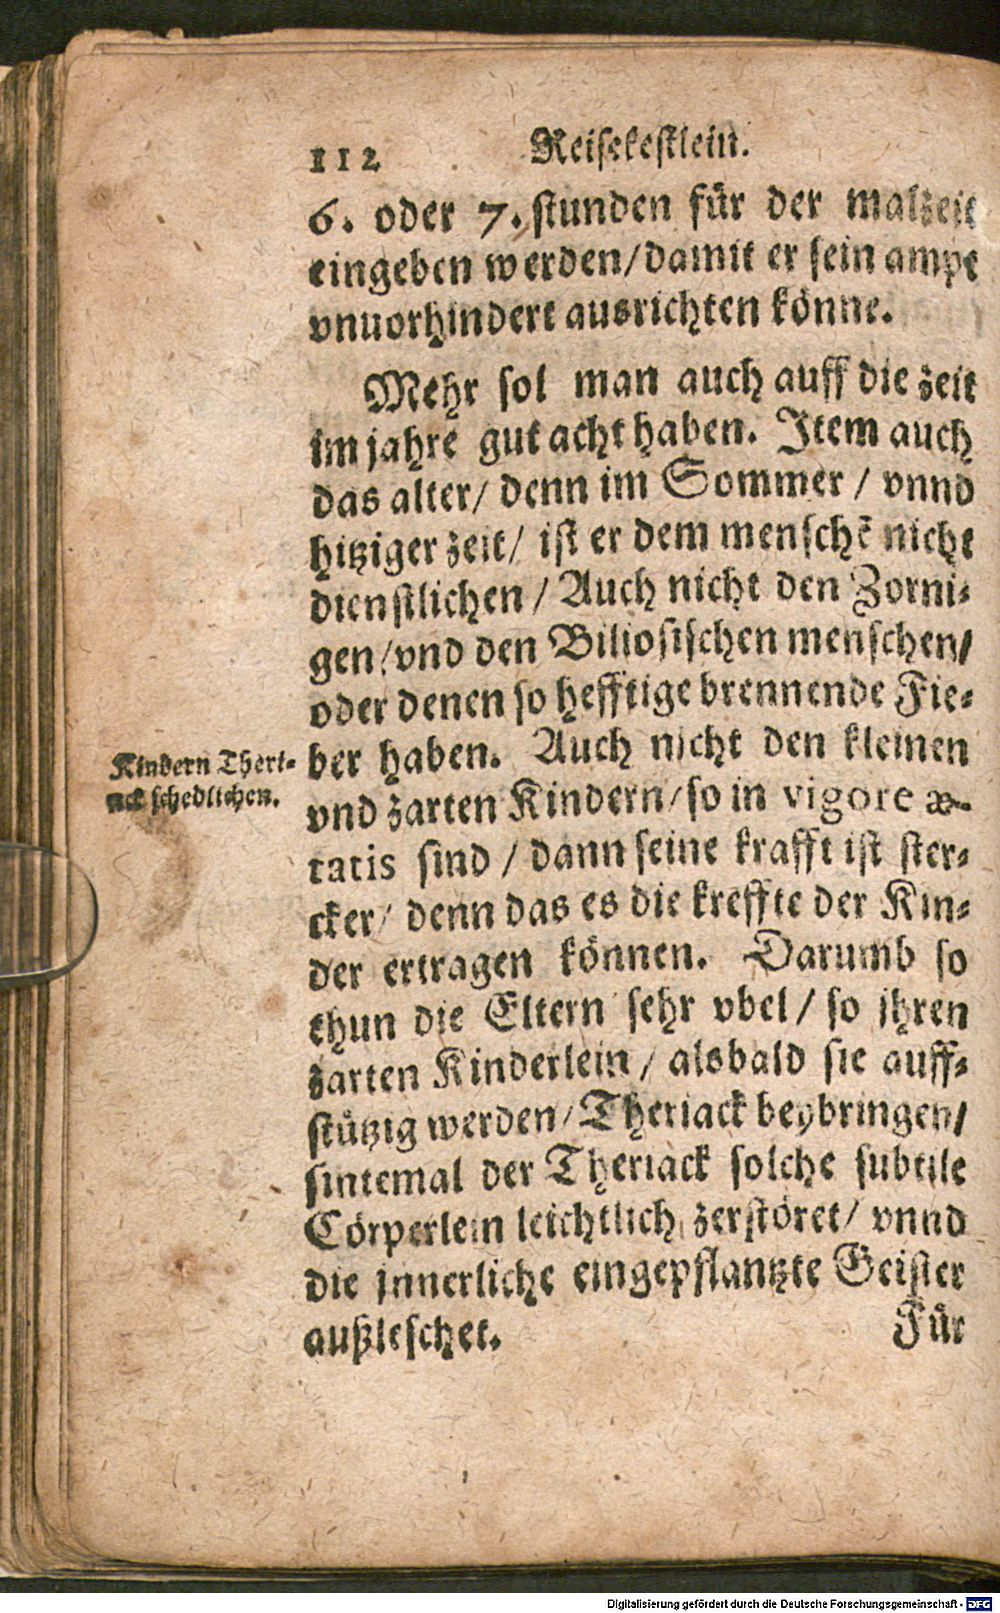 112 Reisekestlein.
6. oder 7. stunden für der malzeit
eingeben werden/damit er sein ampt
vnuorhindert ausrichten könne.
Mehr sol man auch auff die zeit
im jahre gut acht haben. Item auch
das alter/ denn im Sommer / vnnd
hitziger zeit/ ist er dem menschẽ nicht
dienstlichen / Auch nicht den Zorni-
gen/vnd den Biliosischen menschen/
oder denen so hefftige brennende Fie-
ber haben. Auch nicht den kleinen
Kindern Theri-
ack schedlichen.
vnd zarten Kindern/so in vigore æ-
tatis sind / dann seine krafft ist ster-
cker/ denn das es die kreffte der Kin-
der ertragen können. Darumb so
thun die Eltern sehr vbel / so ihren
zarten Kinderlein / alsbald sie auff-
stützig werden/Theriack beybringen/
sintemal der Theriack solche subtile
Cörperlein leichtlich zerstöret/ vnnd
die innerliche eingepflantzte Geister
außleschet.
Für
Digitalisierung gefördert durch die Deutsche Forschungsgemeinschaft - DFG